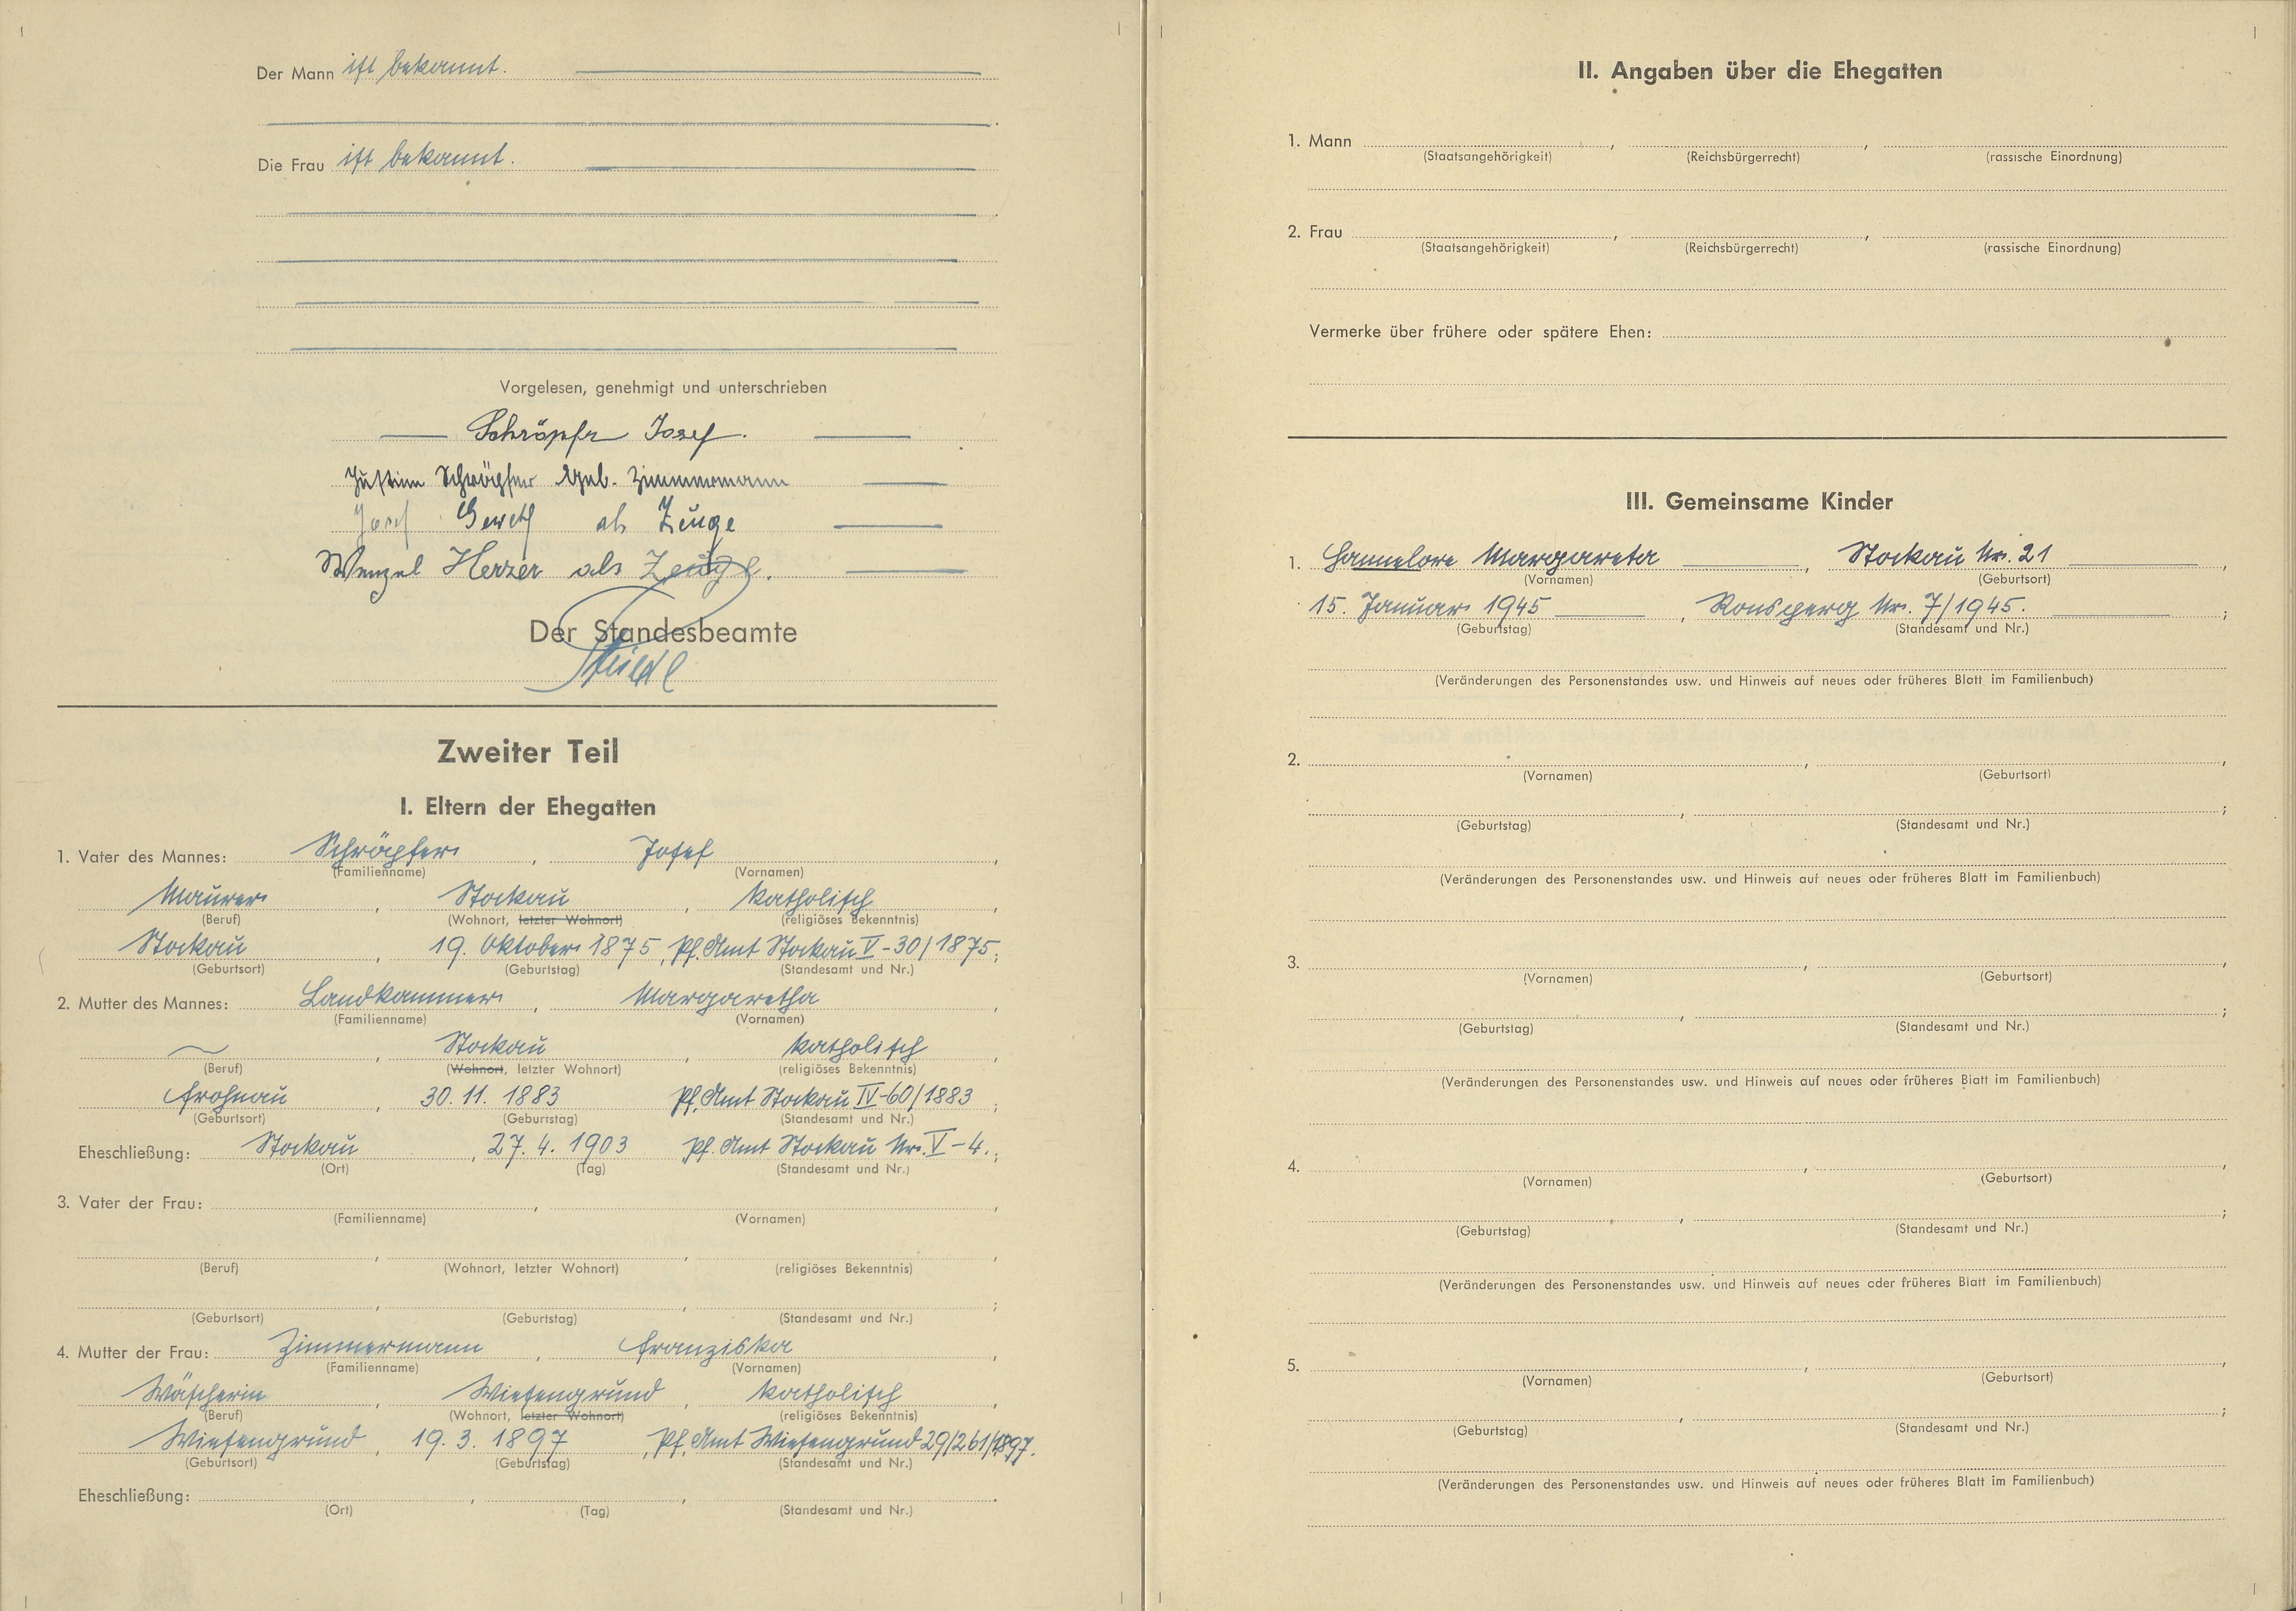 Der Mann ist bekannt.
Die Frau ist bekannt.
Vorgelesen, genehmigt und unterschrieben
Schröpfer Josef.
Justine Schröpfer geb. Zimmermann
Josef als Zeuge
Wenzel Herzer als Zeuge.
Der Standesbeamte
Zweiter Teil
I. Eltern der Ehegatten
1. Vater des Mannes: Schröpfer, Josef,
(Familienname) (Vornamen)
Maurer, Stockau, katholisch,
(Beruf) (Wohnort, letzter Wohnort) (religiöses Bekenntnis)
Stockau, 19. Oktober 1875, Pf. Amt Stockau V-30/1875;
(Geburtsort) (Geburtstag) (Standesamt und Nr.)
2. Mutter des Mannes: Landkammer, Margaretha,
(Familienname) (Vornamen)
Stockau, katholisch,
(Beruf) (Wohnort, letzter Wohnort) (religiöses Bekenntnis)
Frohnau, 30. 11. 1883 Pf. Amt Stockau IV-60/1883;
(Geburtsort) (Geburtstag) (Standesamt und Nr.)
Eheschließung: Stockau, 27. 4. 1903 Pf. Amt Stockau Nr. V-4.;
(Ort) (Tag) (Standesamt und Nr.)
3. Vater der Frau:
(Familienname) (Vornamen)
(Beruf) (Wohnort, letzter Wohnort) (religiöses Bekenntnis)
(Geburtsort) (Geburtstag) (Standesamt und Nr.)
4. Mutter der Frau: Zimmermann, Franziska,
(Familienname) (Vornamen)
Wäscherin, Wiesengrund, katholisch,
(Beruf) (Wohnort, letzter Wohnort) (religiöses Bekenntnis)
Wiesengrund, 19. 3. 1897, Pf. Amt Wiesengrund 29/261/1897.
(Geburtsort) (Geburtstag) (Standesamt und Nr.)
Eheschließung:
(Ort) (Tag) (Standesamt und Nr.)
II. Angaben über die Ehegatten
1. Mann
(Staatsangehörigkeit) (Reichsbürgerrecht) (rassische Einordnung)
2. Frau
(Staatsangehörigkeit) (Reichsbürgerrecht) (rassische Einordnung)
Vermerke über frühere oder spätere Ehen:
III. Gemeinsame Kinder
1. Hannelore Margareta, Stockau Nr. 21,
(Vornamen) (Geburtsort)
15. Januar 1945, Ronsperg Nr. 7/1945.;
(Geburtstag) (Standesamt und Nr.)
(Veränderungen des Personenstandes usw. und Hinweis auf neues oder früheres Blatt im Familienbuch)
2.
(Vornamen) (Geburtsort)
(Geburtstag) (Standesamt und Nr.)
(Veränderungen des Personenstandes usw. und Hinweis auf neues oder früheres Blatt im Familienbuch)
3.
(Vornamen) (Geburtsort)
(Geburtstag) (Standesamt und Nr.)
(Veränderungen des Personenstandes usw. und Hinweis auf neues oder früheres Blatt im Familienbuch)
4.
(Vornamen) (Geburtsort)
(Geburtstag) (Standesamt und Nr.)
(Veränderungen des Personenstandes usw. und Hinweis auf neues oder früheres Blatt im Familienbuch)
5.
(Vornamen) (Geburtsort)
(Geburtstag) (Standesamt und Nr.)
(Veränderungen des Personenstandes usw. und Hinweis auf neues oder früheres Blatt im Familienbuch)